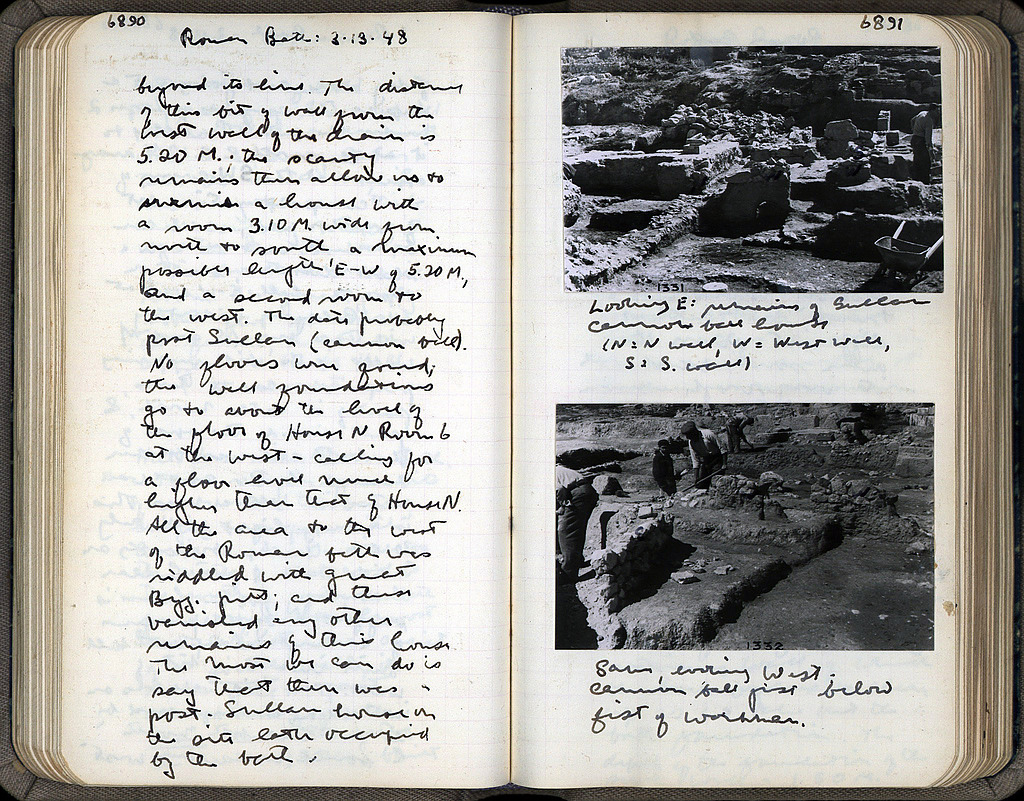 6890
Roman Bath: 3.13.48
beyond its line. The distance
of this bit of wall from the
west wall of the drain is
5.20 M.; the scanty
remains thus allow us to
a house with
a room 3.10 M. wide from
north to south a maximum
possible length E-W of 5.20 M,
and a second room to
the west. The date probably
post Sullan (cannon ball).
No floors were found;
the wall foundations
go to about the level of
the floor of House N Room 6
at the west - calling for
a floor level much
higher than that of House N.
All the area to the west
of the Roman bath was
riddled with great
Byz. pits, and these
vanished any other
remains of this house.
The most we can do is
say that there was a
post-Sullan house on
the site later occupied
by the bath.
6891
1331
Looking E: remains of Sullan
cannon ball house
(N = N wall, W = West wall,
S = S. wall)
1332
Same, looking West.
cannon ball just below
fist of workman.